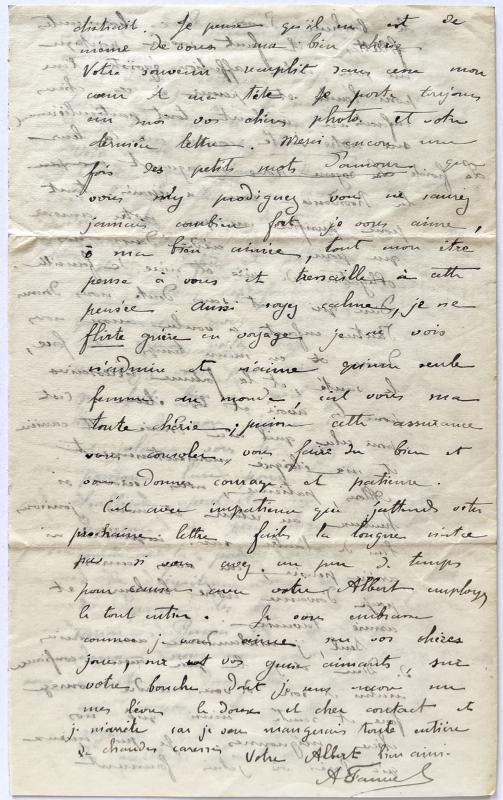 distrait. Je pense qu'il en est de
même de vous ma bien chérie
Votre souvenir remplit sans cesse mon
cœur et ma tête. Je porte toujours
en moi vos chères photos et votre
dernière lettre. Merci encore une
fois des petits mots d'amour que
vous m'y prodiguez vous ne saurez
jamais combien fort je vous aime,
ô ma bien aimée, tout mon être
pense à vous et tressaille à cette
pensée aussi soyez calme, je ne
flirte guère en voyage je ne vois
n'admire et n'aime qu'une seule
femme au monde, c'est vous ma
toute chérie, puisse cette assurance
vous consoler, vous faire du bien et
vous donner courage et patience.
C'est avec impatience que j'attends votre
prochaine lettre faites la longue
pas si vous avez un peu de temps
pour causer avec votre Albert employez
le tout entier. Je vous embrasse
comme je vous aime sur vos chères
joues sur vos yeux aimants, sur
votre bouche dont je sens encore
mes lèvres le doux et cher contact et
je m'arrête car je vous mangerais toute entière
de chaudes caresses
Votre Albert bien aimé.